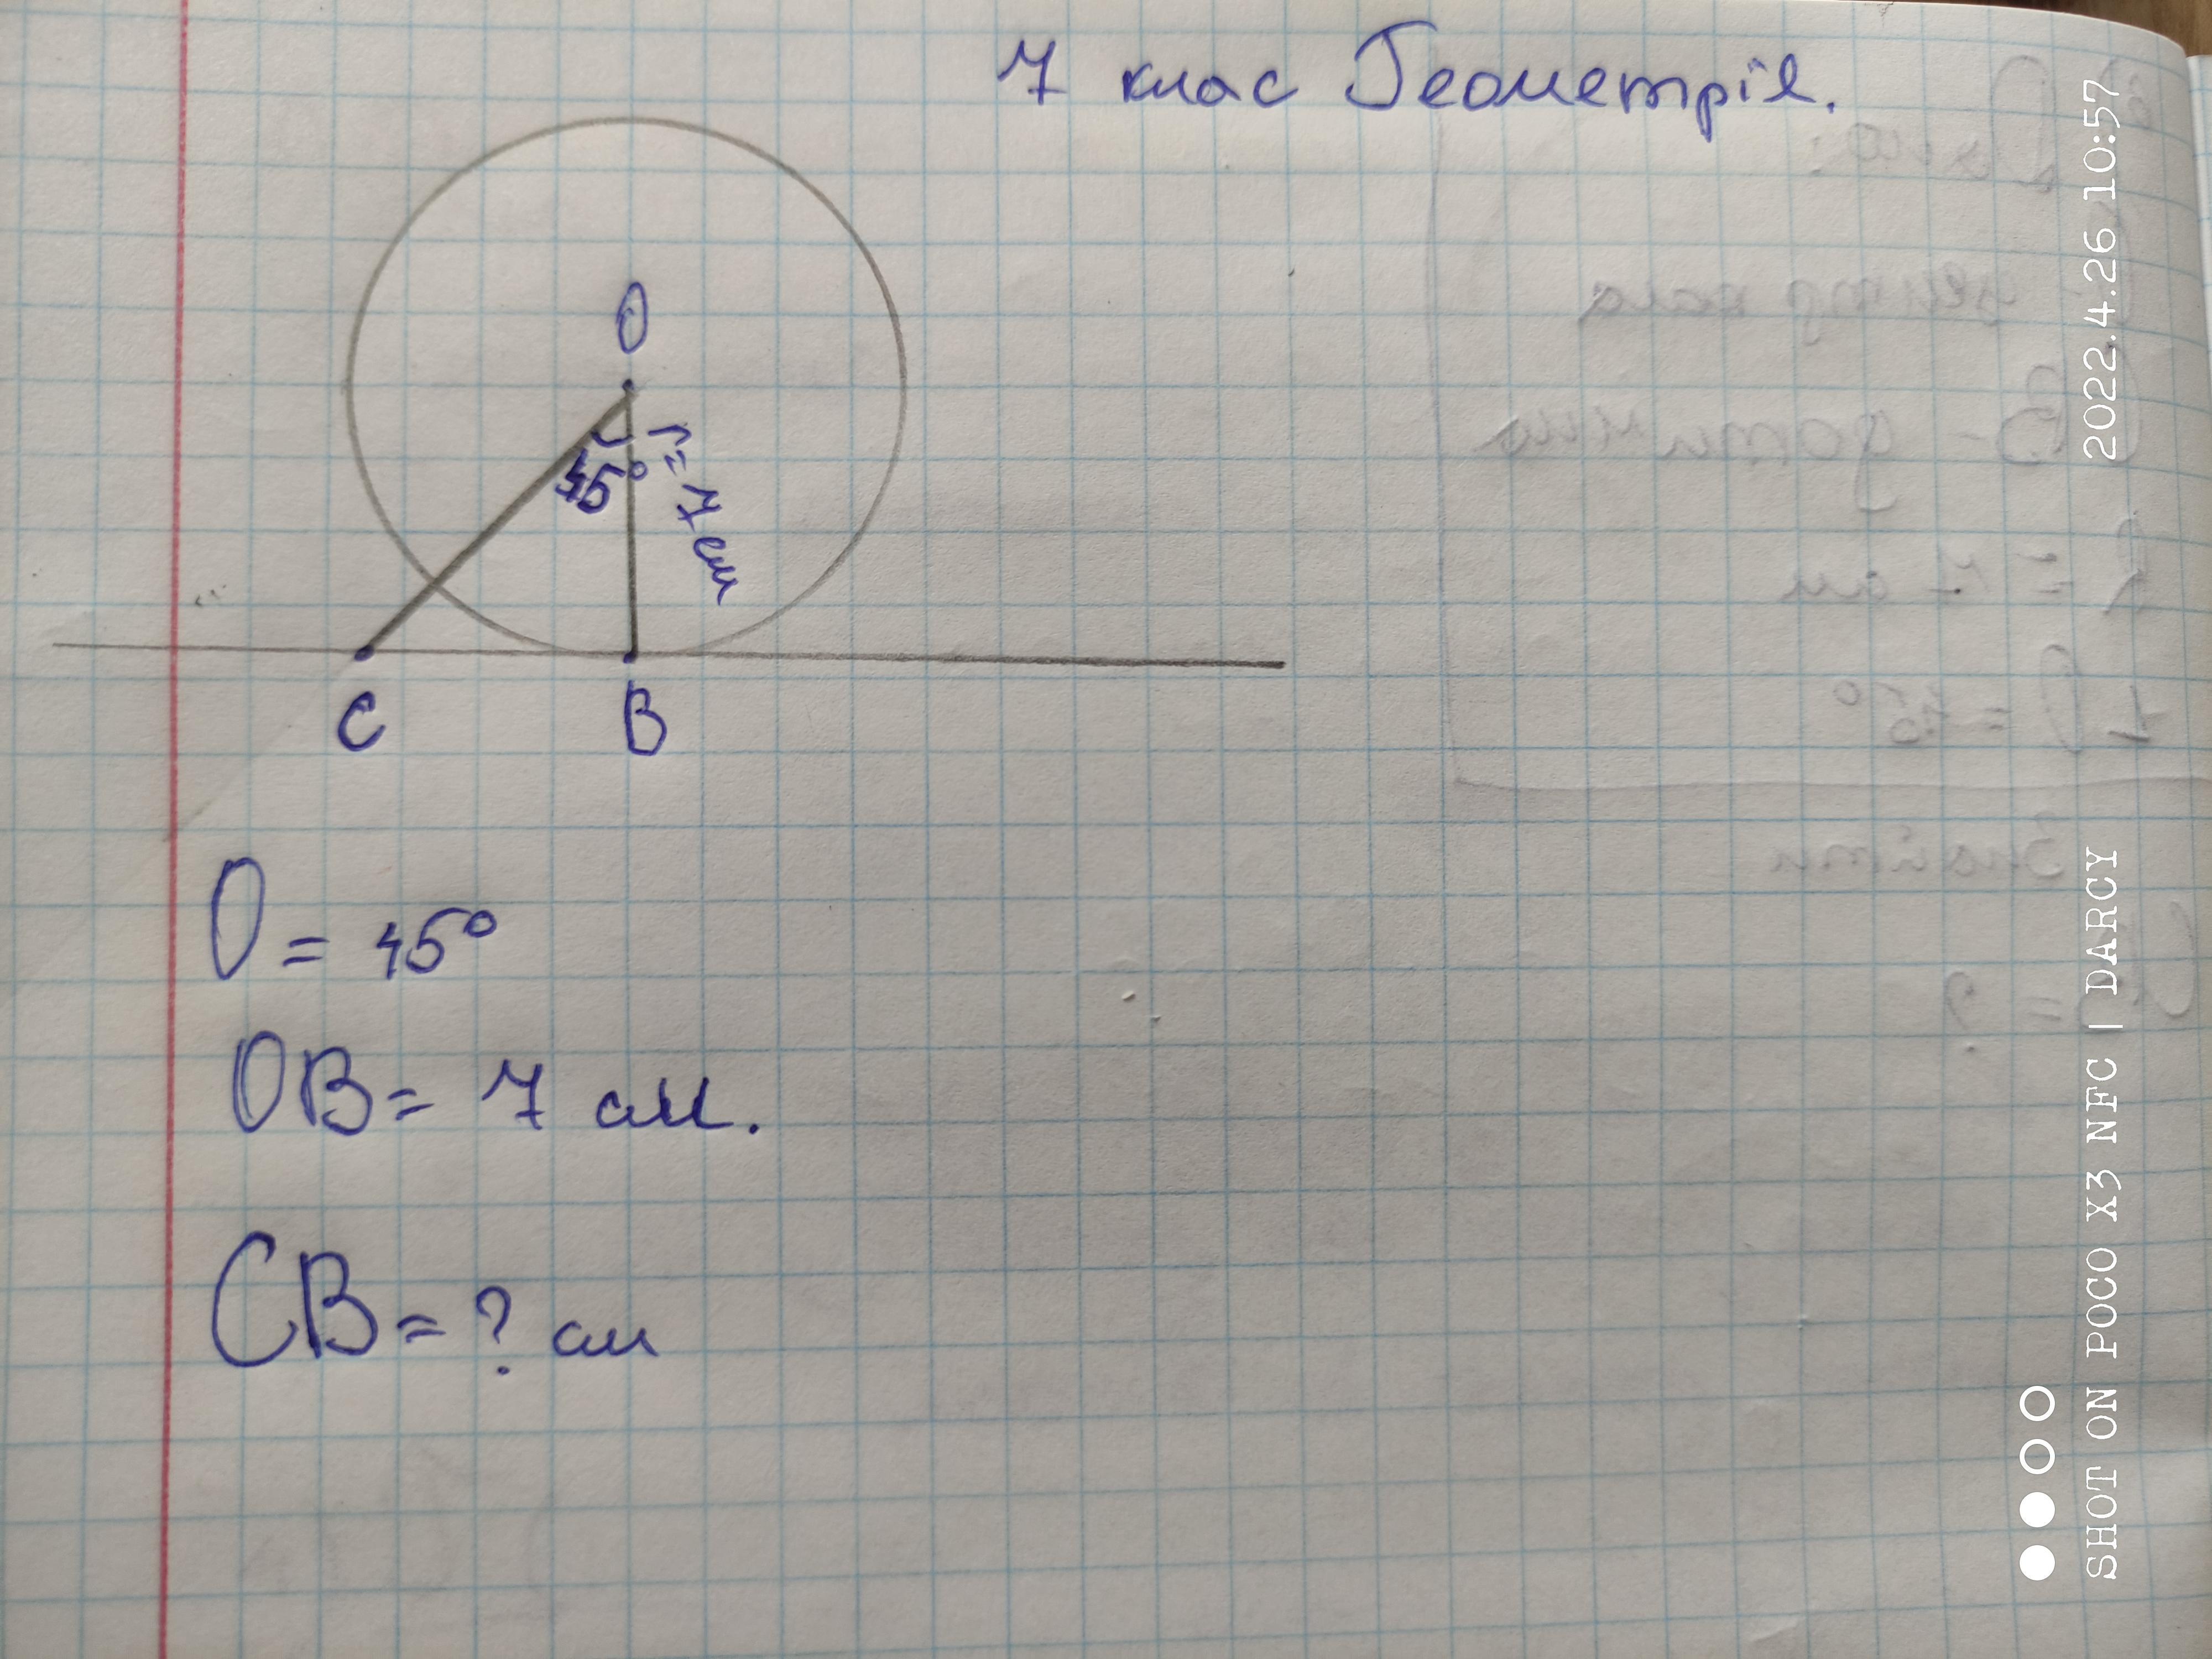 7 клас Геометрія.
O
45°
r = 7 см
C
B
O = 45°
OB = 7 см.
CB = ? см
2022.4.26 10:57
SHOT ON POCO X3 NFC | DARCY